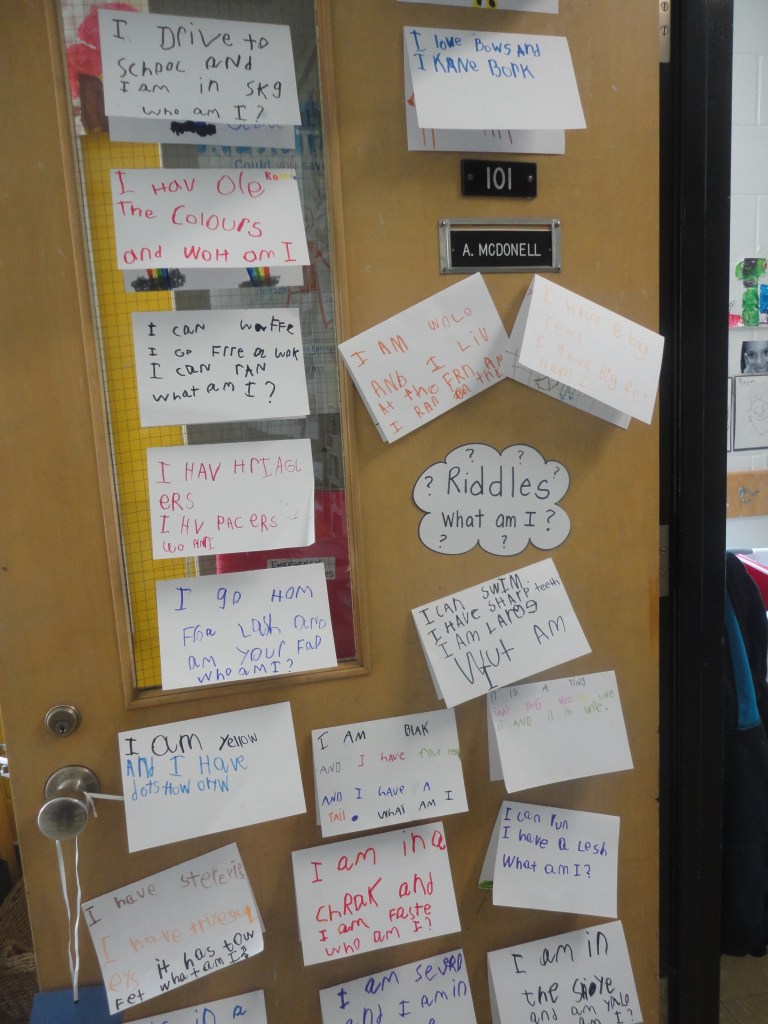 I DRIVE to
SCHOOL AND
I am in SK9
who am I?
I love Bows AND
I KANE BOrK
101
A. MCDONELL
I HAV Ole
The Colours
and woH am I
I can waffe
I Go FIre a wok
I can rAN
what am I?
I AM
AND I LIV
At the FRN AN
I RAN
I HAVE 8 big
I HAVE Big
I HAV HrIAGL
ERS
I HV PACERS
wo AmI
?
? ?
? Riddles ?
What am I?
? ?
EMERGENCY
I go HOM
For LASh
am YOUr FaD
who am I?
I CAN SWIM
I HAVE SHARP teeth
I AM LARGe
Wut AM
I
IT IS A
AND it is wite.
I am Yellow
AND I HAVE
dots How
I AM BlAK
AND I have four
AND I HAVE A
TAIL. WHAt AM I
I can run
I have a Lesh
What am I?
I am in a
CHRAK and
I am FASTe
who am I?
I have
I have
it has tow
Fet what am I?
I am in
the SKYe
and am
am I?
I am
AND I am in
in a